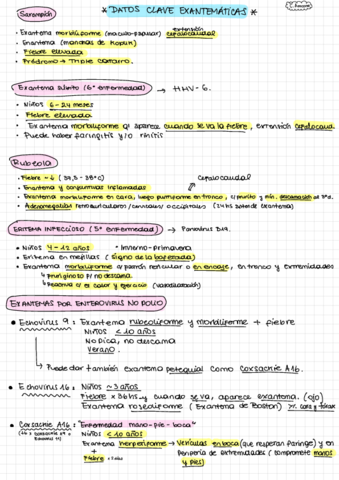 * DATOS CLAVE EXANTEMÁTICAS *
Sarampión
• Exantema morbiliforme (maculo-papular) extensión cefalocaudal
• Enantema (manchas de Koplik)
• Fiebre elevada
• Pródromo → Triple catarro.
Exantema súbito (6ª enfermedad) → HHV-6.
• Niños 6-24 meses
• Fiebre elevada
• Exantema morbiliforme q aparece cuando se va la fiebre, extensión cefalocaud.
• Puede haber faringitis y/o rinitis
Rubeola
• Fiebre
Cefalocaudal
• Enantema y conjuntivas inflamadas
• Exantema morbiliforme en cara, luego puntiforme en tronco, c/ prurito y mín. descamación al 3º d.
• Adenomegalias retroauriculares/cervicales/occipitales (24hs antes de exantema)
ERITEMA INFECCIOSO (5ª enfermedad) → Parvovirus B19.
• Niños 4-12 años
* Invierno-primavera
• Eritema en mejillas (signo de la bofetada)
• Exantema morbiliforme c/ patrón reticular o en encaje, en tronco y extremidades
↳ Pruriginoso P/ no descama.
↳ Reactiva c/ el calor y ejercicio
EXANTEMAS POR ENTEROVIRUS NO POLIO
• Echovirus 9: Exantema rubeoliforme y morbiliforme + fiebre
Niños < 10 años
No pica, no descama
Verano.
↳ Puede dar también exantema petequial como Coxsackie A16.
• Echovirus 16: Niños ~3 años
Fiebre x 36hs y cuando se va, aparece exantema. (ojo)
Exantema roseoliforme (Exantema de Boston) cara y tórax
• Coxsackie A16: "Enfermedad mano-pie-boca"
Niños < 10 años
Exantema herpetiforme → Vesículas en boca (que respetan faringe) y en
+
Fiebre
periferia de extremidades (compromete manos
y pies)